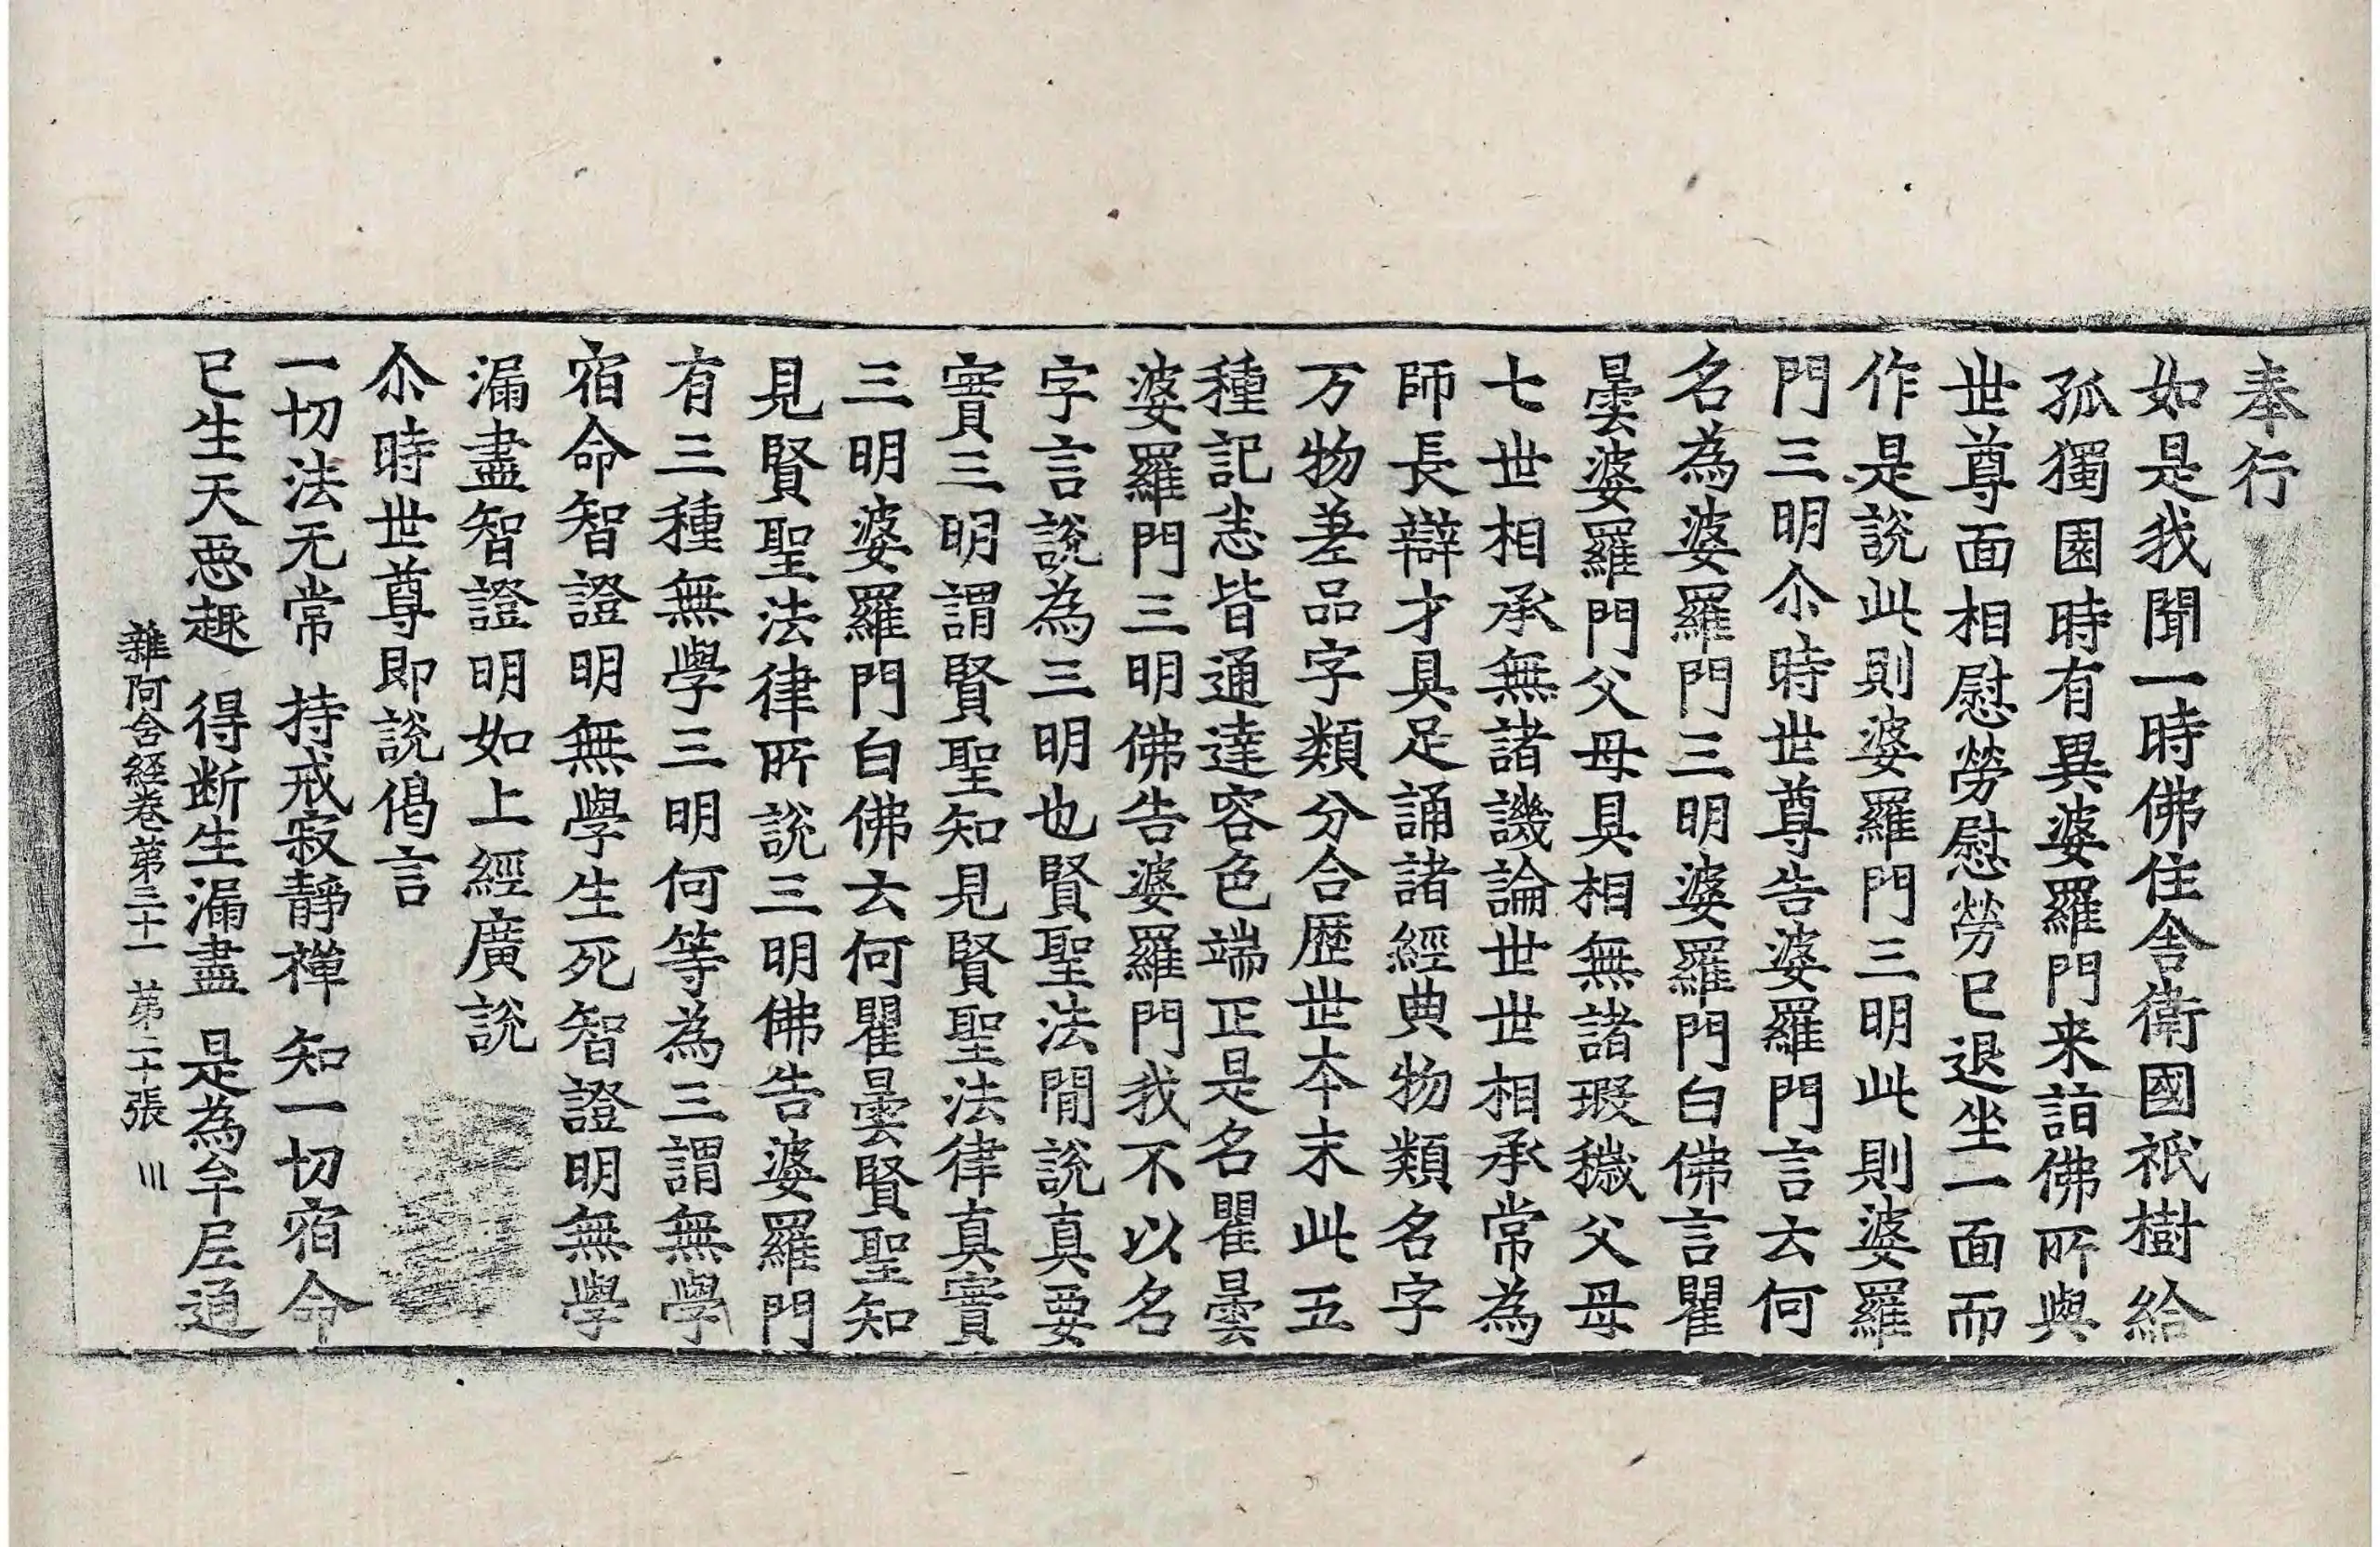 奉行
如是我聞一時佛住舍衛國祇樹給
孤獨園時有異婆羅門来詣佛所與
世尊面相慰勞慰勞已退坐一面而
作是說此則婆羅門三明此則婆羅
門三明尒時世尊告婆羅門言云何
名為婆羅門三明婆羅門白佛言瞿
曇婆羅門父母具相無諸瑕穢父母
七世相承無諸譏論世世相承常為
師長辯才具足誦諸經典物類名字
万物差品字類分合歷世本末此五
種記悉皆通達容色端正是名瞿曇
婆羅門三明佛告婆羅門我不以名
字言說為三明也賢聖法閒說真要
實三明謂賢聖知見賢聖法律真實
三明婆羅門白佛云何瞿曇賢聖知
見賢聖法律所說三明佛告婆羅門
有三種無學三明何等為三謂無學
宿命智證明無學生死智證明無學
漏盡智證明如上經廣說
尒時世尊即說偈言
一切法无常 持戒寂靜禪 知一切宿命
已生天惡趣 得断生漏盡 是為牟尼通
雜阿含経巻第三十一 第二十張 川